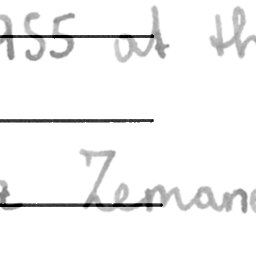 955 at th
Zeman